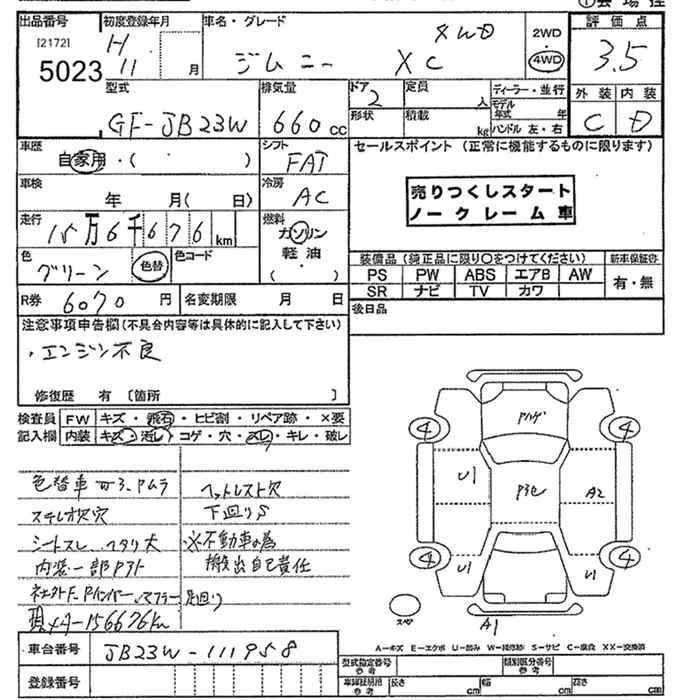 ①会場控
出品番号 初度登録年月 車名・グレード 2WD 評価点
[2172] 5023 H 11 月 ジムニー XC 4WD 4WD 3.5
型式 排気量 ドア 2 定員 人 ディーラー・並行 外装 内装
GF-JB23W 660 cc 形状 積載 kg モデル年式 年 ハンドル 左・右 C D
車歴 自家用・( ・ ) シフト FAT セールスポイント (正常に機能するものに限ります)
車検 年 月(日) 冷房 AC
売りつくしスタート
ノークレーム車
走行 15万6千676 km 燃料 ガソリン 軽油 ( )
色 グリーン 色替 色コード
装備品 (純正品に限り○をつけてください) 新車保証書
PS PW ABS エアB AW 有・無
SR ナビ TV カワ
R券 6070 円 名変期限 月 日 後日品
注意事項申告欄(不具合内容等は具体的に記入して下さい)
・エンジン不良
修復歴 有 〔箇所 〕
検査員 FW キズ・飛石・ヒビ割・リペア跡・×要
記入欄 内装 キズ・汚レ・コゲ・穴・スレ・キレ・破レ
色替車 ヘッドレスト欠
ステレオ欠穴 下廻りS
シートスレ ヘタリ大 ※不動車の為
内装一部 搬出自己責任
マフラー 足廻り
156676km
車台番号 JB23W-111958
登録番号
4 4
U1 A2
4 4
U1 U1
スペ A1
A-キズ E-エクボ U-凹み W-補修跡 S-サビ C-腐食 XX-交換済
型式指定番号 類別区分番号
参考 長さ cm 幅 cm 高さ cm